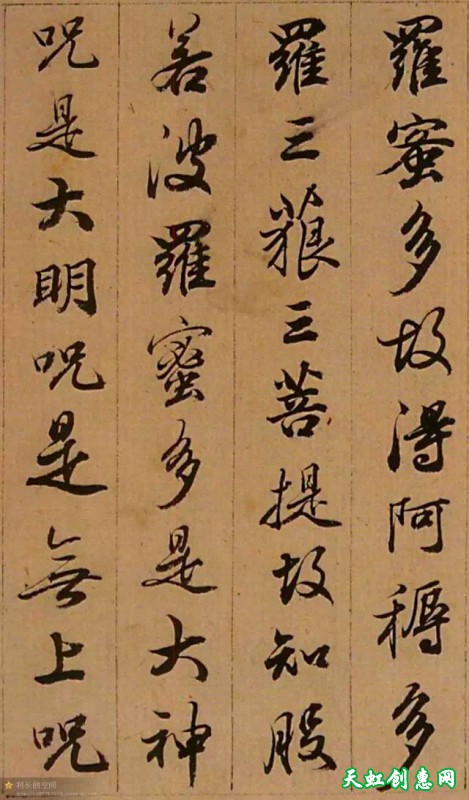 羅蜜多故得阿耨多
羅三藐三菩提故知般
若波羅蜜多是大神
呪是大明呪是無上呪
天虹创惠网
科长的空间